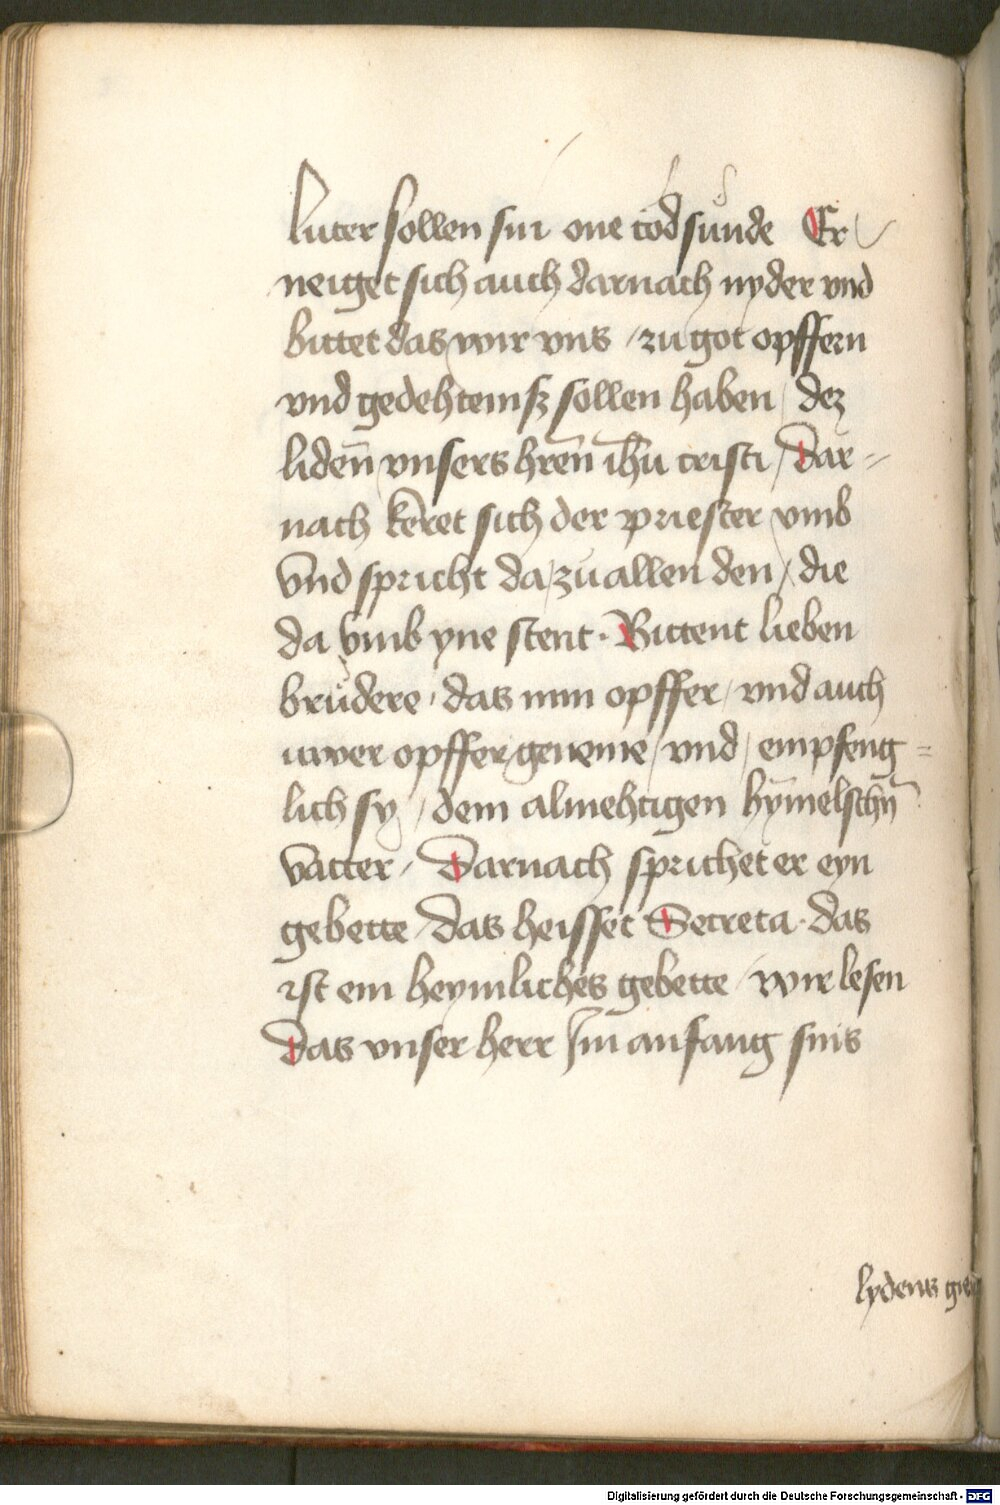 luter sollen sin one todsunde Er
neiget sich auch darnach nyder vnd
bittet das wir vns / zu got opffern
vnd gedehtemsz sollen haben / dez
liden̄ vnsers hren̄ ih̄u cristi / Dar=
nach keret sich der priester vmb
Vnd spricht da zu allen den / die
da vmb yne stent. Bittent lieben
brůdere. das min opffer / vnd auch
uwer opffer geneme / vnd / empfeng=
lich sy / dem almehtigen hȳmelschn̄
vatter / Darnach sprichet er eyn
gebette / das heisset Secreta. das
ist ein heymliches gebette / wir lesen
Das vnser herr Im anfang sins
lydens
Digitalisierung gefördert durch die Deutsche Forschungsgemeinschaft - DFG